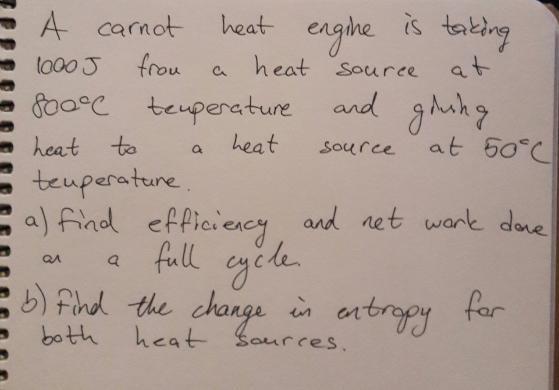 A carnot heat engine is taking
1000J from a heat source at
800°C temperature and giving
heat to a heat source at 50°C
temperature.
a) Find efficiency and net work done
on a full cycle.
b) Find the change in entropy for
both heat sources.